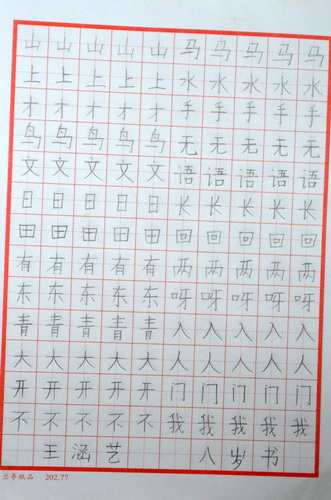 山山山山山马马马马马
上上上上上水水水水水
才才才才才手手手手手
鸟鸟鸟鸟鸟无无无无无
文文文文文语语语语语
日日日日日长长长长长
田田田田田回回回回回
有有有有有两两两两两
东东东东东呀呀呀呀呀
青青青青青入入入入入
大大大大大人人人人人
开开开开开门门门门门
不不不不不我我我我我
王涵艺 八岁书
兰亭纸品 202.77